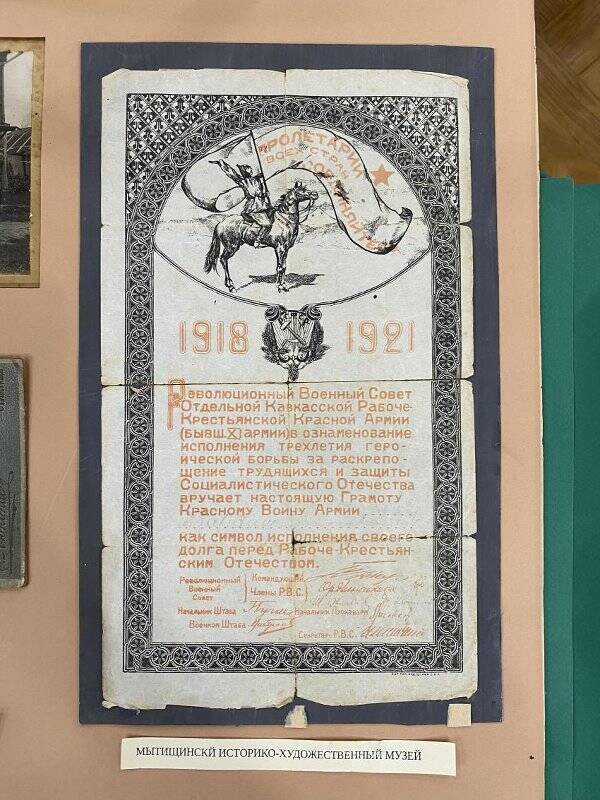 ПРОЛЕТАРИИ
ВСЕХ СТРАН
СОЕДИНЯЙТЕСЬ
1918 1921
Революционный Военный Совет
Отдельной Кавкасской Рабоче-
Крестьянской Красной Армии
(бывш. XI армии) в ознаменование
исполнения трехлетия геро-
ической борьбы за раскрепо-
щение трудящихся и защиты
Социалистического Отечества
вручает настоящую Грамоту
Красному Воину Армии
как символ исполнения своего
долга перед Рабоче-Крестьян-
ским Отечеством.
Революционный Военный Совет
Командующий
Члены Р.В.С.
Начальник Штаба
Начальник Поокаварм
Военком Штаба
Секретарь Р.В.С.
МЫТИЩИНСКЙ ИСТОРИКО-ХУДОЖЕСТВЕННЫЙ МУЗЕЙ